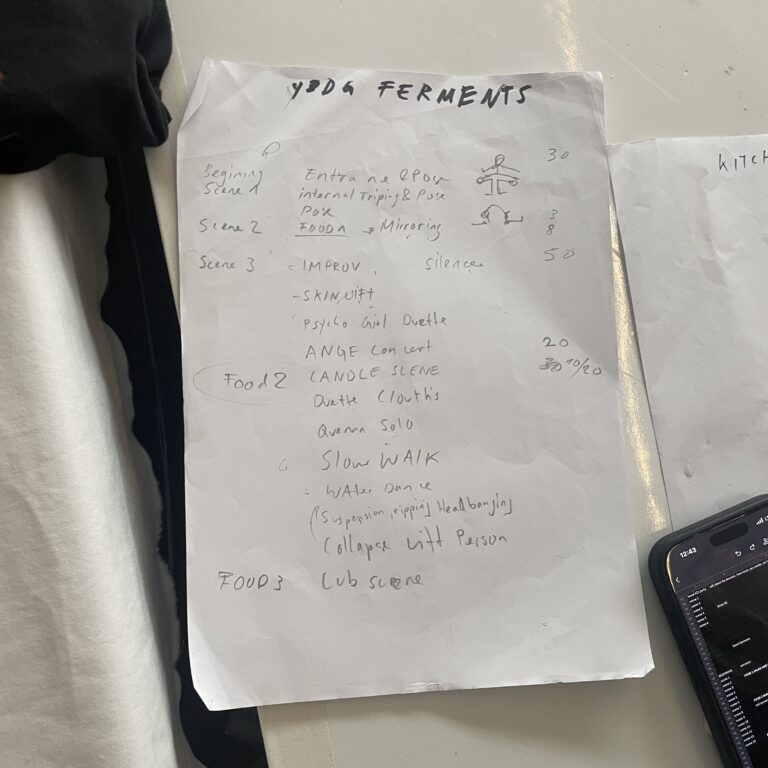 YBDG FERMENTS
Begining Entra ne & Pose 30
Scene 1 internal Triping & Pose
Pose 3
Scene 2 FOOD 1 → Mirroring 8
Scene 3 - IMPROV silence 50
- SKIN Lift
Psycho Girl Duette
ANGE Concert 20
Food 2 CANDLE SCENE 10/20
Duette Clouths
Solo
Slow WALK
WAter Dance
(Suspension, ripping Headbanging
Collapse Lift Person
FOOD 3 Lub scene
KITCH
12:43